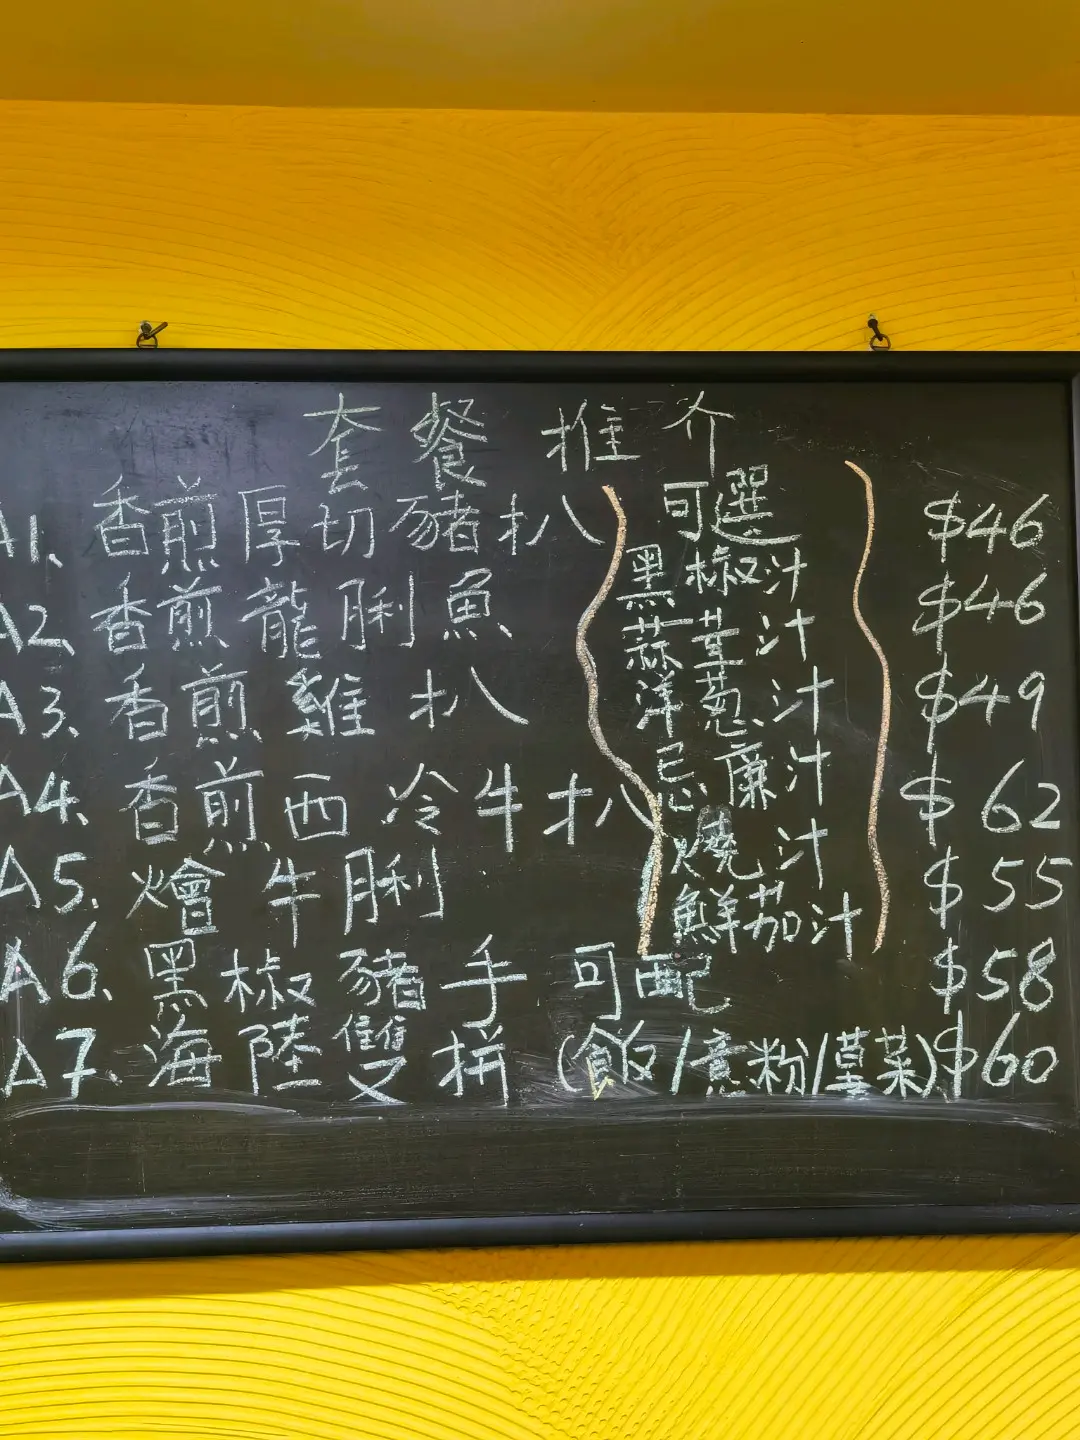 套餐推介
A1. 香煎厚切豬扒 可選 $46
黑椒汁
A2. 香煎龍脷魚 $46
蒜茸汁
A3. 香煎雞扒 洋葱汁 $49
忌廉汁
A4. 香煎西冷牛扒 $62
燒汁
A5. 燴牛脷 鮮茄汁 $55
A6. 黑椒豬手 可配 $58
A7. 海陸雙拼 (飯/意粉/薯菜) $60